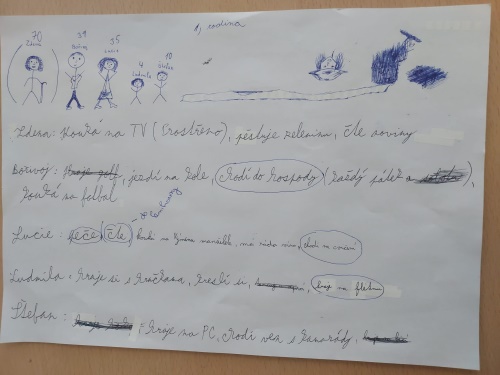 1) rodina
70 39 35 4 10
Zdena Bořivoj Lucie Ludmila Štefan
Zdena: kouká na TV (Prostřeno), pěstuje zeleninu, čte noviny
Bořivoj: hraje golf, jezdí na kole, chodí do hospody (každý pátek a
kouká na fotbal
Lucie: peče, čte, kouká na Výměnu manželek, má ráda víno, chodí na cvičení
Ludmila: hraje si s hračkama, kreslí si, hraje na flétnu
Štefan: hraje na PC, chodí ven s kamarády,